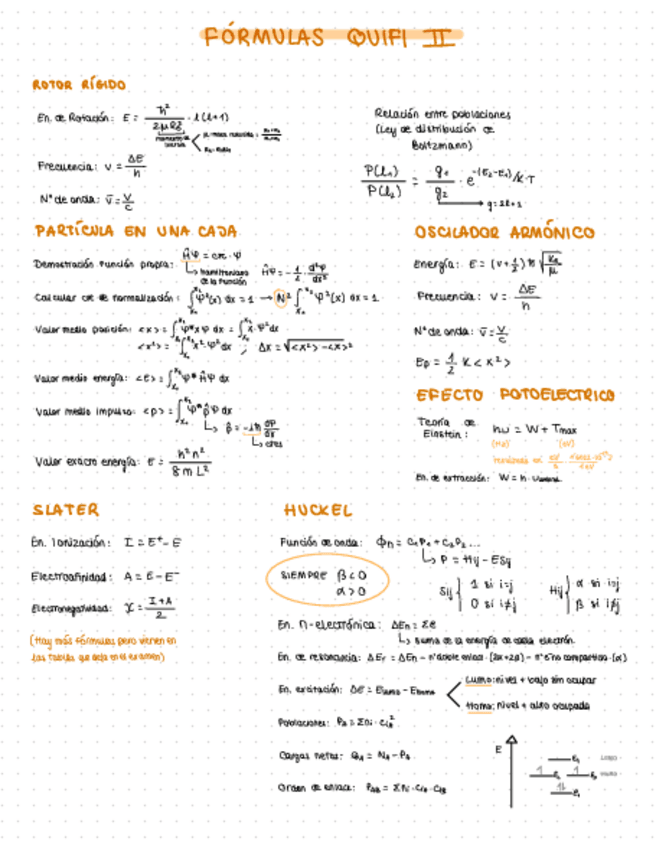 FÓRMULAS QUIFI II
ROTOR RÍGIDO
En. de Rotación: E = ħ² / 2μR₀² · l(l+1)
Frecuencia: ν = ΔE / h
Nº de onda: ν̄ = ν / c
Relación entre poblaciones
(Ley de distribución de
Boltzmann)
P(l₁) / P(l₂) = g₁ / g₂ · e^-(E₂-E₁)/K·T
g = 2l+1
PARTÍCULA EN UNA CAJA
Demostración función propia: Ĥφ = cte · φ
hamiltoniano de la función Ĥφ = - 1/2 · d²φ/dx²
Calcular cte de normalización: ∫φ²(x) dx = 1 → N² ∫φ²(x) dx = 1
Valor medio posición: <x> = ∫φ* x φ dx = ∫x·φ² dx
<x²> = ∫x²·φ² dx ; Δx = √<x²>-<x>²
Valor medio energía: <E> = ∫φ* Ĥφ dx
Valor medio impulso: <p> = ∫φ* p̂φ dx
Valor exacto energía: E = h²n² / 8mL²
OSCILADOR ARMÓNICO
Energía: E = (v+1/2) ħ √k/μ
Frecuencia: ν = ΔE / h
Nº de onda: ν̄ = ν / c
Ep = 1/2 K <x²>
EFECTO FOTOELECTRICO
Teoría de
Einstein: hν = W + Tmax
En. de extracción: W = h · ν
SLATER
En. Ionización: I = E⁺ - E
Electroafinidad: A = E - E⁻
Electronegatividad: χ = I+A / 2
(Hay más fórmulas pero vienen en
las tablas que deja en el examen)
HUCKEL
Función de onda: Φn = C₁P₁ + C₂P₂...
P = Hij - ESij
SIEMPRE β < 0
α > 0
Sij { 1 si i=j
0 si i≠j
Hij { α si i=j
β si i≠j
En. π-electrónica: ΔEπ = Σe
suma de la energía de cada electrón.
En. de resonancia: ΔEr = ΔEπ - nº doble enlace · (2α+2β) - nº e⁻ no compartidos · (α)
En. excitación: ΔE = Elumo - Ehomo
Lumo: nivel + bajo sin ocupar
Homo: nivel + alto ocupado
Poblaciones: PA = Σni · ciA²
Cargas netas: QA = NA - PA
Orden de enlace: PAB = Σni · ciA · ciB
E